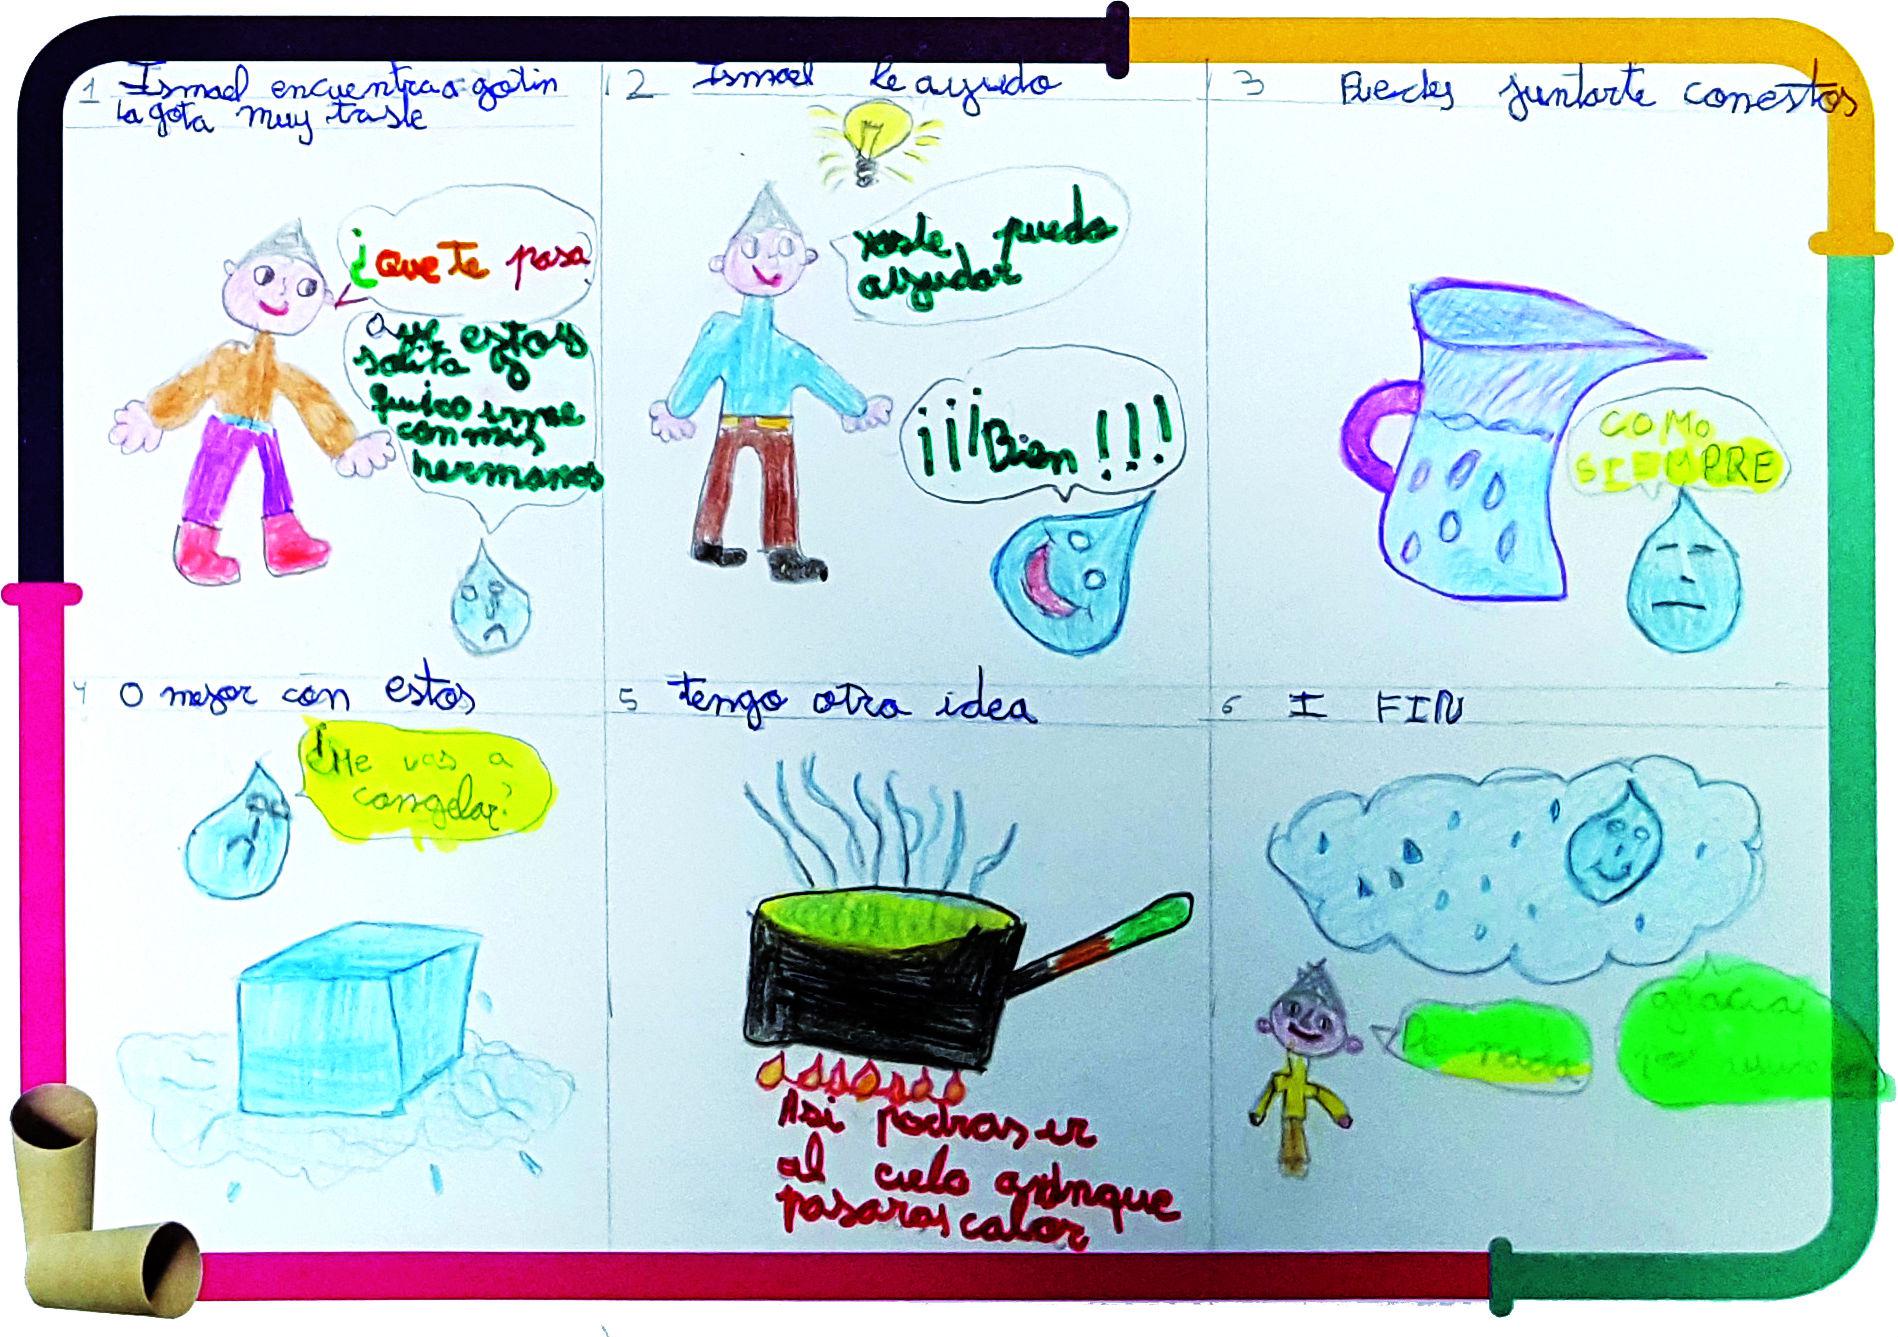 1 Ismael encuentra a gotin
la gota muy triste
¿Que te pasa
estoy
solita
quiero irme
con mis
hermanos
2 Ismael le ayuda
puedo
ayudar
¡¡¡Bien!!!
3 Puedes juntarte con estos
COMO
SIEMPRE
4 O mejor con estos
¿Me vas a
congelar?
5 tengo otra idea
Asi podras ir
al cielo aunque
pasaras calor
6 I FIN
De nada
gracias
por